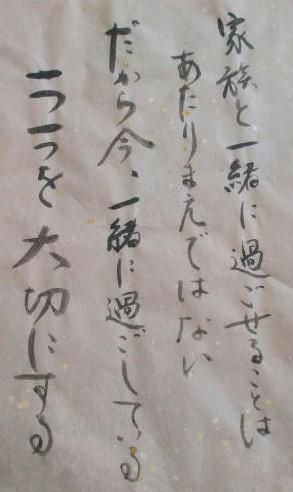 家族と一緒に過ごせることは
あたりまえではない
だから今、一緒に過ごしている
一つ一つを大切にする